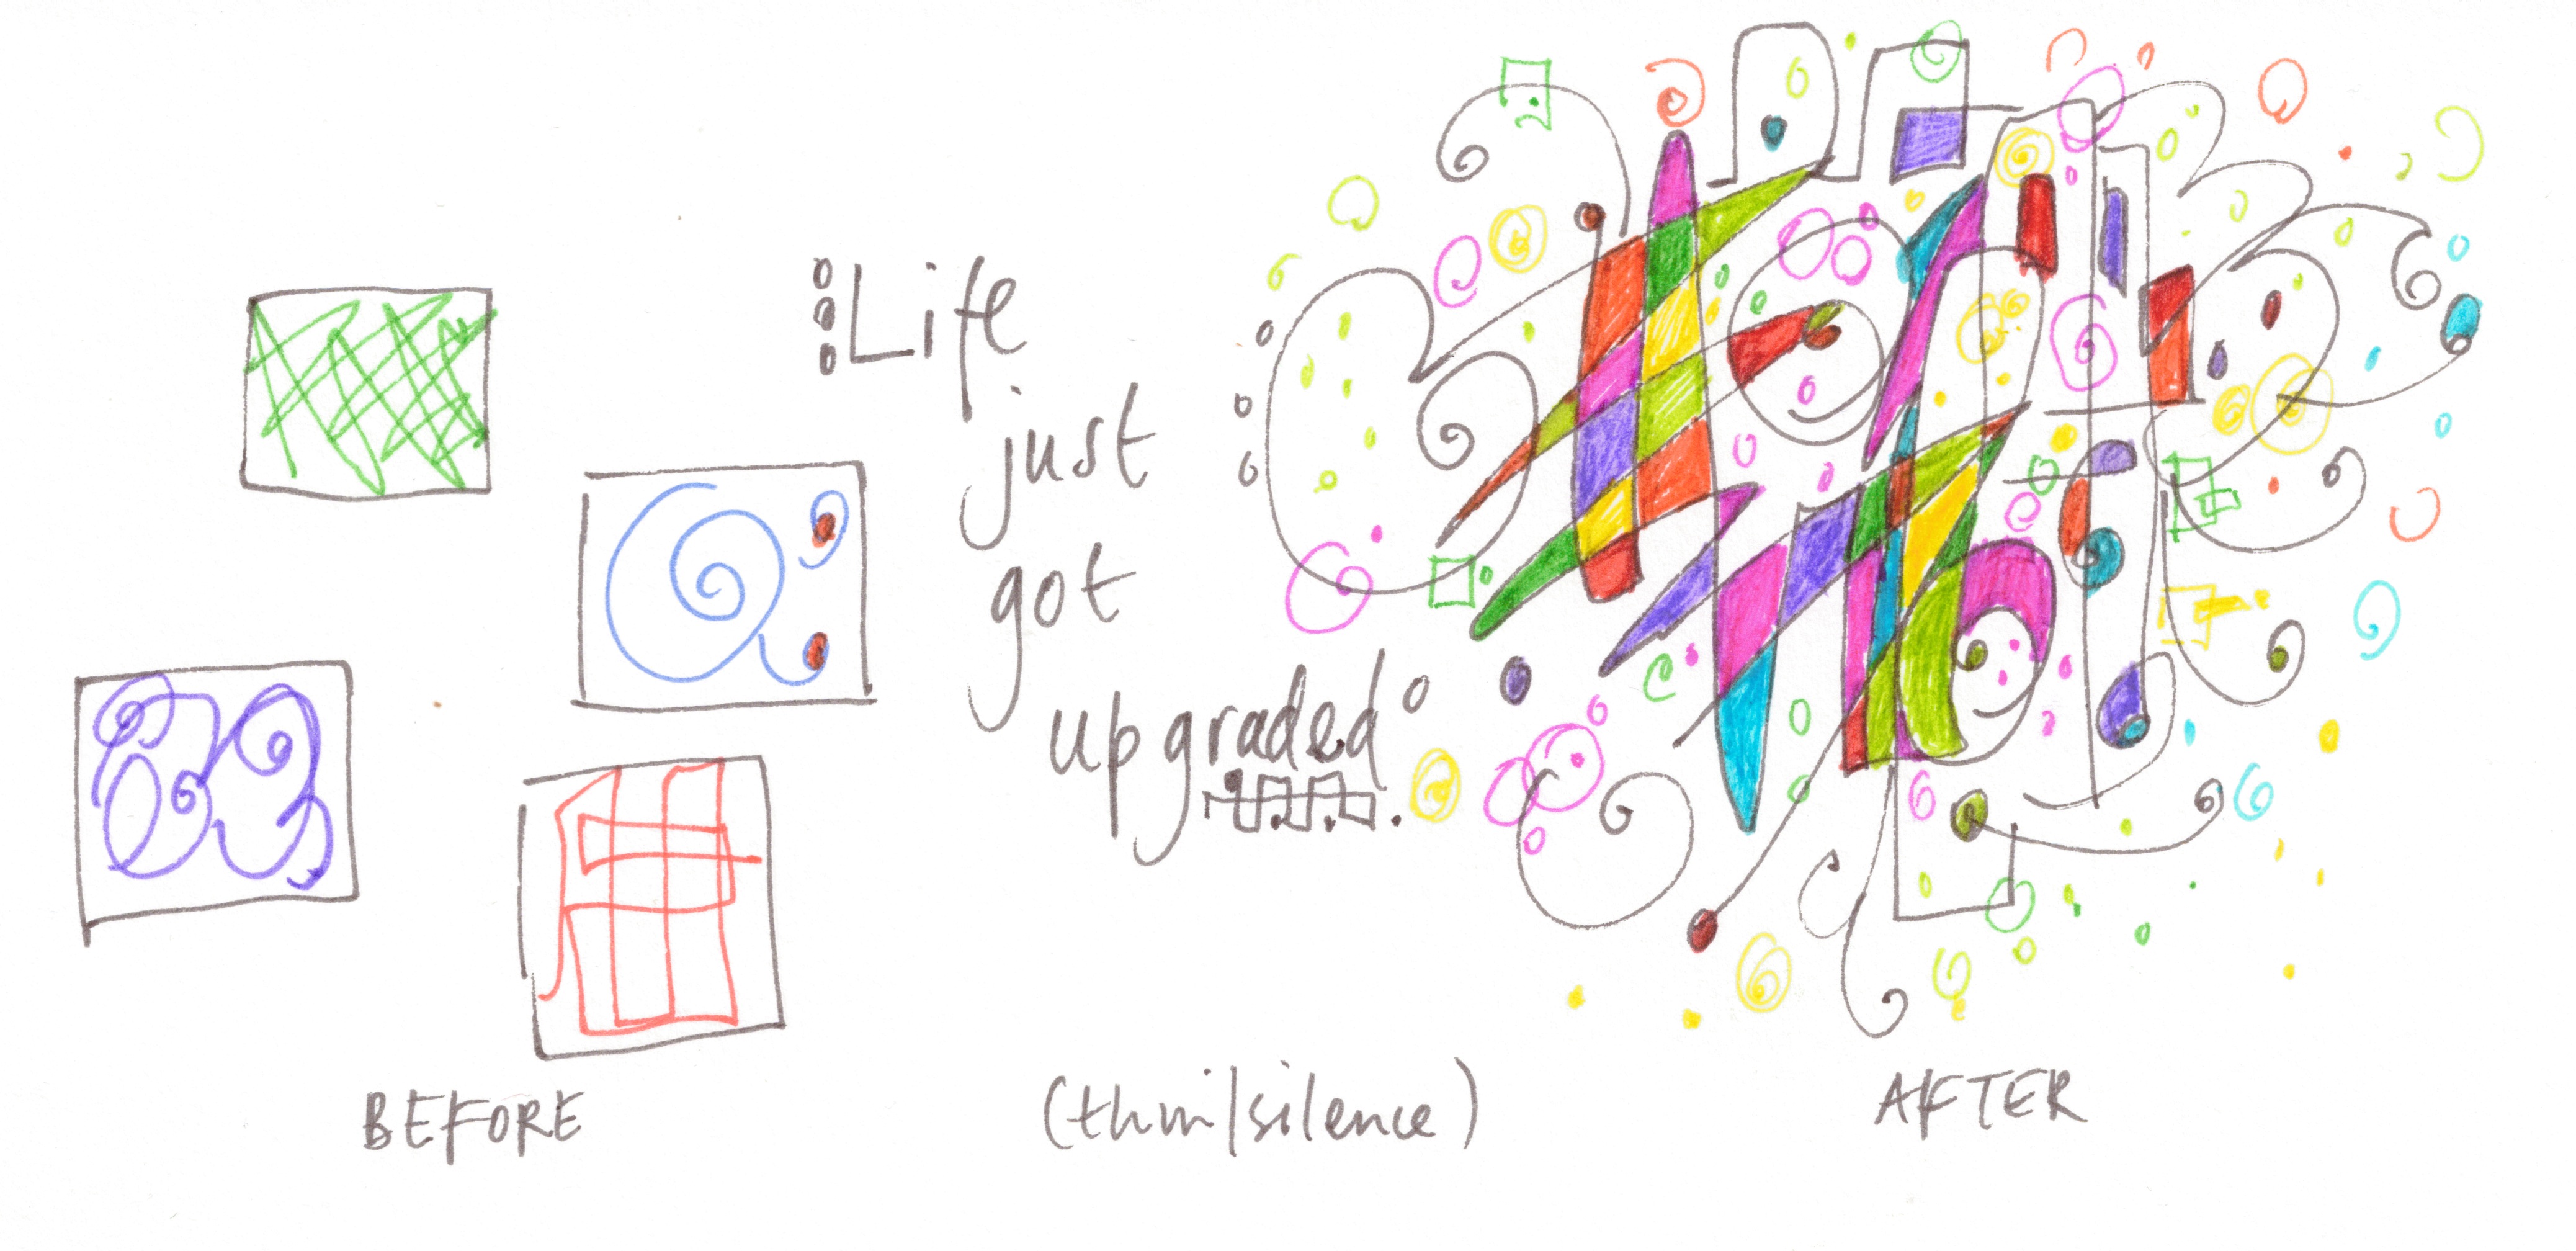 Life
just
got
upgraded
BEFORE
(thin/silence)
AFTER